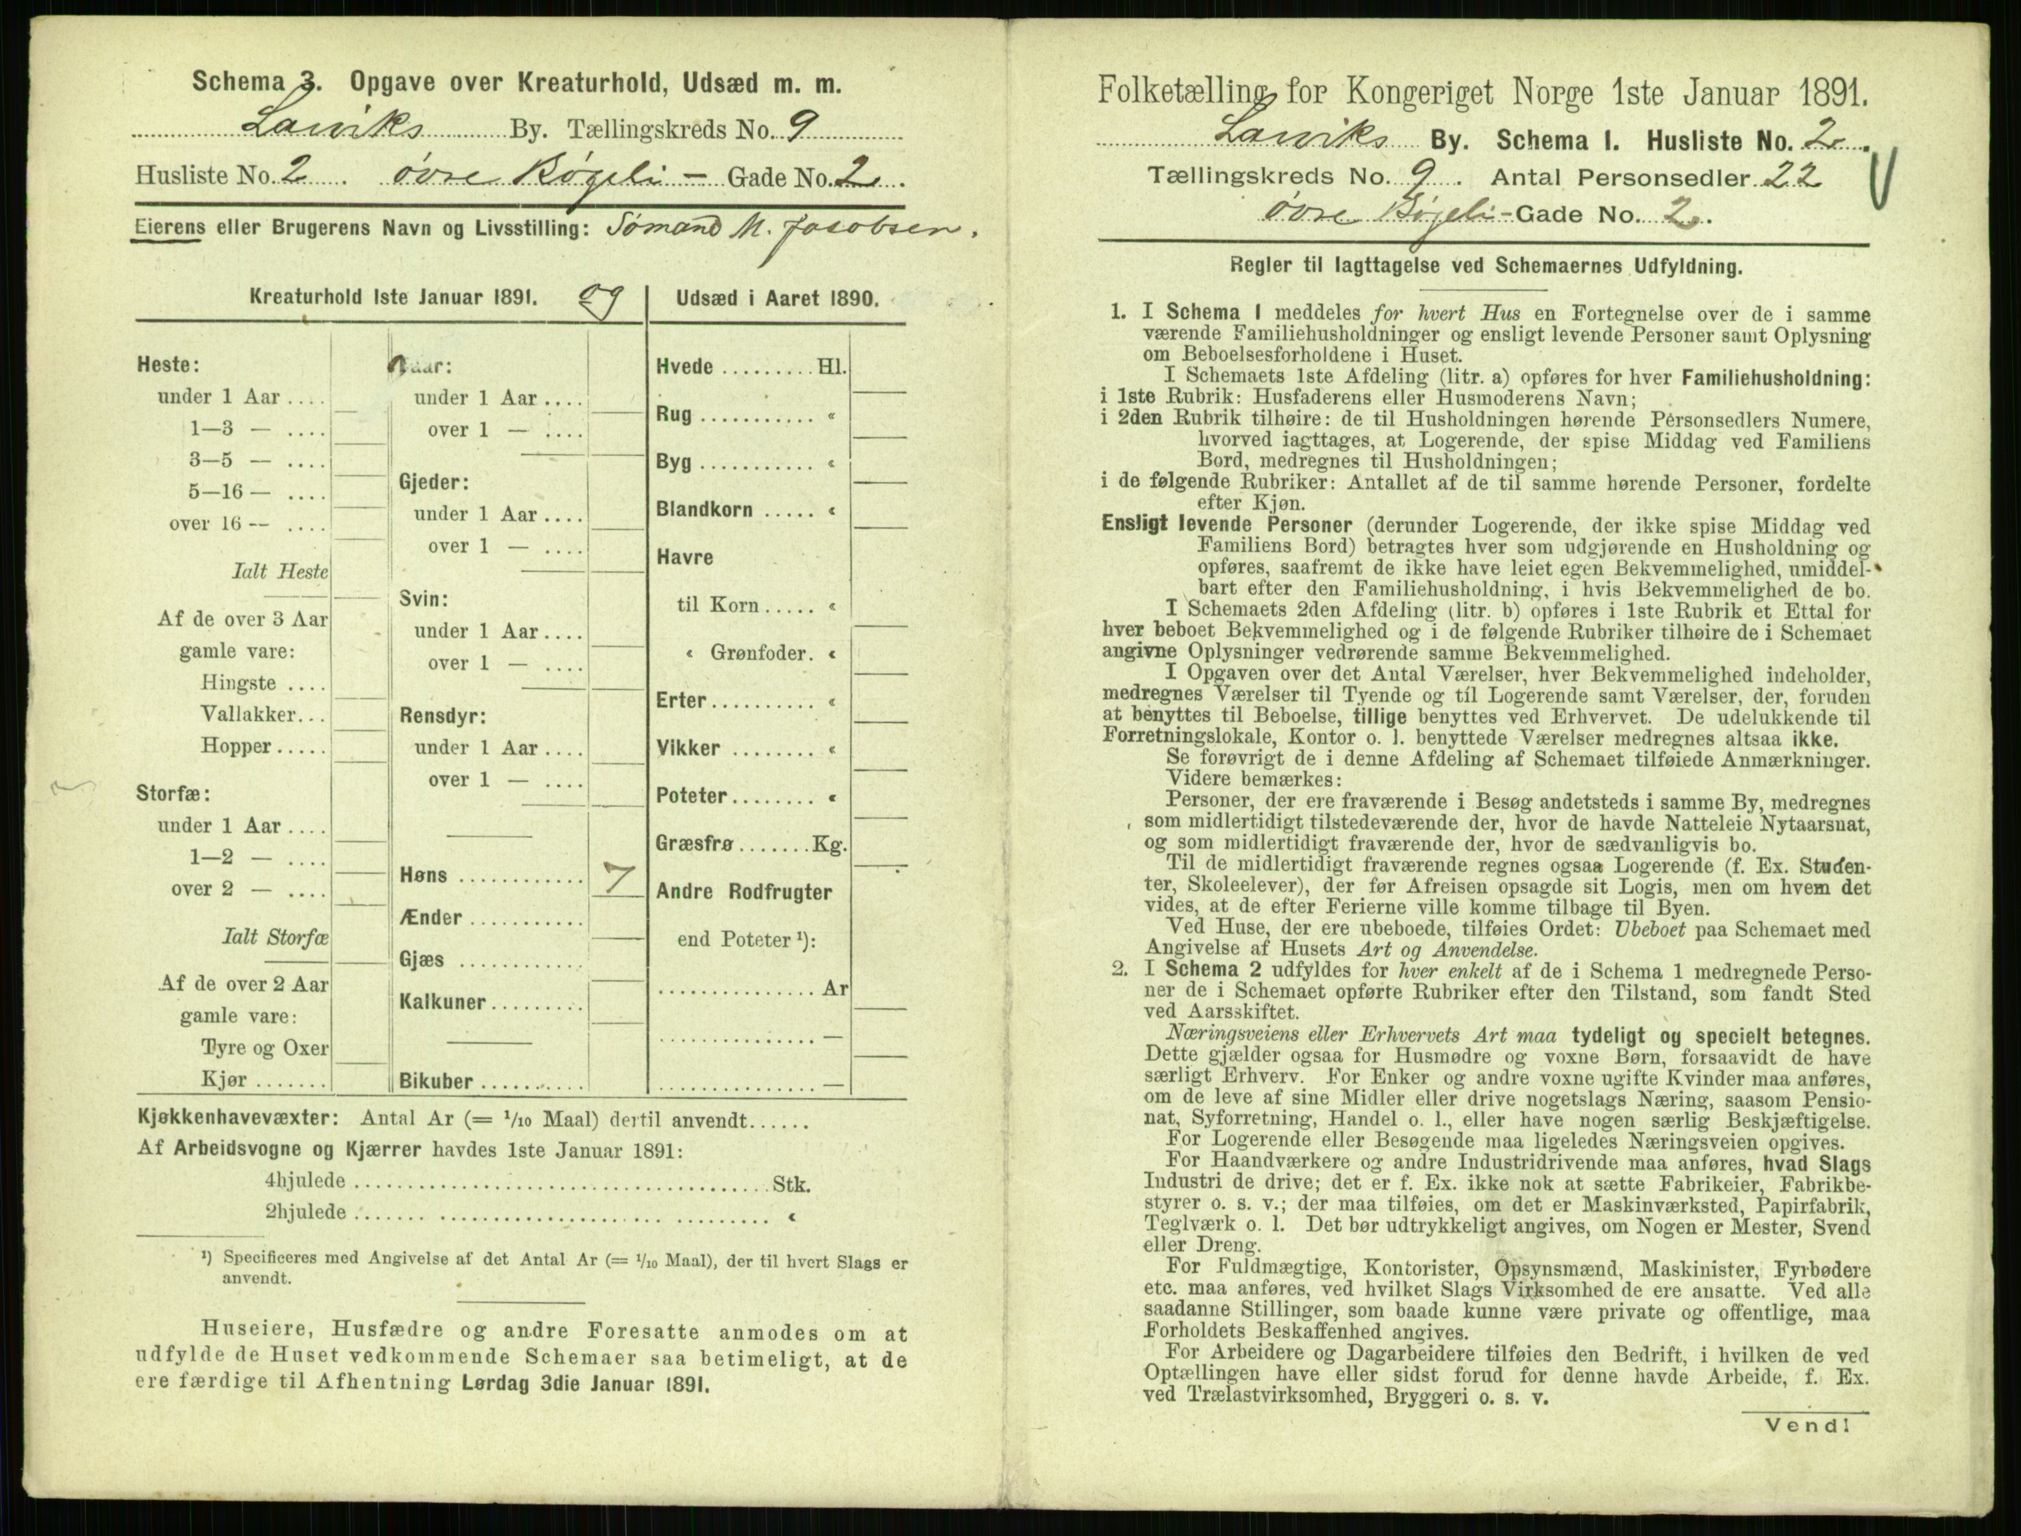 Schema 3. Opgave over Kreaturhold, Udsæd m. m.
Larviks By. Tællingskreds No. 9
Husliste No. 2. øvre Bøgeli - Gade No. 2.
Eierens eller Brugerens Navn og Livsstilling: Sømand M. Jacobsen.
Kreaturhold 1ste Januar 1891. og
Heste:
under 1 Aar ....
1—3 — ....
3—5 — ....
5—16 — ....
over 16 — ....
Ialt Heste
Af de over 3 Aar
gamle vare:
Hingste ....
Vallakker...
Hopper.....
Storfæ:
under 1 Aar ....
1—2 — ....
over 2 — ....
Ialt Storfæ
Af de over 2 Aar
gamle vare:
Tyre og Oxer
Kjør .......
aar:
under 1 Aar ....
over 1 — ....
Gjeder:
under 1 Aar ....
over 1 — ....
Svin:
under 1 Aar ....
over 1 — ....
Rensdyr:
under 1 Aar ....
over 1 — ....
Høns ............ 7
Ænder ...........
Gjæs ............
Kalkuner.........
Bikuber ..........
Udsæd i Aaret 1890.
Hvede ......... Hl.
Rug ........... «
Byg ........... «
Blandkorn ..... «
Havre
til Korn ..... «
« Grønfoder. «
Erter.......... «
Vikker ........ «
Poteter........ «
Græsfrø....... Kg.
Andre Rodfrugter
end Poteter ¹):
............... Ar
............... —
............... —
Kjøkkenhavevæxter: Antal Ar (= 1/10 Maal) dertil anvendt......
Af Arbeidsvogne og Kjærrer havdes 1ste Januar 1891:
4hjulede ..................................... Stk.
2hjulede ..................................... «
¹) Specificeres med Angivelse af det Antal Ar (= 1/10 Maal), der til hvert Slags er
anvendt.
Huseiere, Husfædre og andre Foresatte anmodes om at
udfylde de Huset vedkommende Schemaer saa betimeligt, at de
ere færdige til Afhentning Lørdag 3die Januar 1891.
Folketælling for Kongeriget Norge 1ste Januar 1891.
Larviks By. Schema 1. Husliste No. 2.
Tællingskreds No. 9. Antal Personsedler 22
øvre Bøgeli - Gade No. 2.
Regler til Iagttagelse ved Schemaernes Udfyldning.
1. I Schema 1 meddeles for hvert Hus en Fortegnelse over de i samme
værende Familiehusholdninger og ensligt levende Personer samt Oplysning
om Beboelsesforholdene i Huset.
I Schemaets 1ste Afdeling (litr. a) opføres for hver Familiehusholdning:
i 1ste Rubrik: Husfaderens eller Husmoderens Navn;
i 2den Rubrik tilhøire: de til Husholdningen hørende Personsedlers Numere,
hvorved iagttages, at Logerende, der spise Middag ved Familiens
Bord, medregnes til Husholdningen;
i de følgende Rubriker: Antallet af de til samme hørende Personer, fordelte
efter Kjøn.
Ensligt levende Personer (derunder Logerende, der ikke spise Middag ved
Familiens Bord) betragtes hver som udgjørende en Husholdning og
opføres, saafremt de ikke have leiet egen Bekvemmelighed, umiddel-
bart efter den Familiehusholdning, i hvis Bekvemmelighed de bo.
I Schemaets 2den Afdeling (litr. b) opføres i 1ste Rubrik et Ettal for
hver beboet Bekvemmelighed og i de følgende Rubriker tilhøire de i Schemaet
angivne Oplysninger vedrørende samme Bekvemmelighed.
I Opgaven over det Antal Værelser, hver Bekvemmelighed indeholder,
medregnes Værelser til Tyende og til Logerende samt Værelser, der, foruden
at benyttes til Beboelse, tillige benyttes ved Erhvervet. De udelukkende til
Forretningslokale, Kontor o. l. benyttede Værelser medregnes altsaa ikke.
Se forøvrigt de i denne Afdeling af Schemaet tilføiede Anmærkninger.
Videre bemærkes:
Personer, der ere fraværende i Besøg andetsteds i samme By, medregnes
som midlertidigt tilstedeværende der, hvor de havde Natteleie Nytaarsnat,
og som midlertidigt fraværende der, hvor de sædvanligvis bo.
Til de midlertidigt fraværende regnes ogsaa Logerende (f. Ex. Studen-
ter, Skoleelever), der før Afreisen opsagde sit Logis, men om hvem det
vides, at de efter Ferierne ville komme tilbage til Byen.
Ved Huse, der ere ubeboede, tilføies Ordet: Ubeboet paa Schemaet med
Angivelse af Husets Art og Anvendelse.
2. I Schema 2 udfyldes for hver enkelt af de i Schema 1 medregnede Perso-
ner de i Schemaet opførte Rubriker efter den Tilstand, som fandt Sted
ved Aarsskiftet.
Næringsveiens eller Erhvervets Art maa tydeligt og specielt betegnes.
Dette gjælder ogsaa for Husmødre og voxne Børn, forsaavidt de have
særligt Erhverv. For Enker og andre voxne ugifte Kvinder maa anføres,
om de leve af sine Midler eller drive nogetslags Næring, saasom Pensio-
nat, Syforretning, Handel o. l., eller have nogen særlig Beskjæftigelse.
For Logerende eller Besøgende maa ligeledes Næringsveien opgives.
For Haandværkere og andre Industridrivende maa anføres, hvad Slags
Industri de drive; det er f. Ex. ikke nok at sætte Fabrikeier, Fabrikbe-
styrer o. s. v.; der maa tilføies, om det er Maskinværksted, Papirfabrik,
Teglværk o. l. Det bør udtrykkeligt angives, om Nogen er Mester, Svend
eller Dreng.
For Fuldmægtige, Kontorister, Opsynsmænd, Maskinister, Fyrbødere
etc. maa anføres, ved hvilket Slags Virksomhed de ere ansatte. Ved alle
saadanne Stillinger, som baade kunne være private og offentlige, maa
Forholdets Beskaffenhed angives.
For Arbeidere og Dagarbeidere tilføies den Bedrift, i hvilken de ved
Optællingen have eller sidst forud for denne havde Arbeide, f. Ex.
ved Trælastvirksomhed, Bryggeri o. s. v.
Vend!